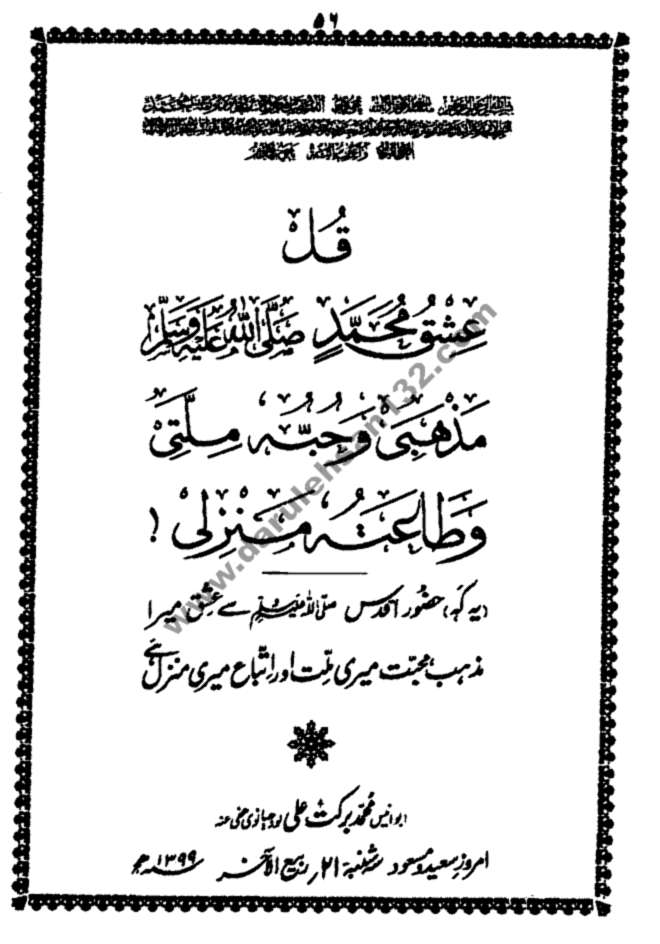 ۵۶
قُلْ
عِشْقُ مُحَمَّدٍ صَلَّى اللهُ عَلَيْهِ وَسَلَّمَ
مَذْهَبِیْ وَحُبُّهٗ مِلَّتِیْ
وَطَاعَتُهٗ مَنْزِلِیْ !
(یہ کہ) حضور اقدس صلی اللہ علیہ وسلم سے عشق میرا
مذہب، محبت میری ملت اور اتباع میری منزل ہے
ابوانیس محمد برکت علی لودھیانوی عفی عنہ
امروز سعید و مسعود سہ شنبہ ۲۱ ربیع الآخر ۱۳۹۹ھ
www.darulehsan132.com